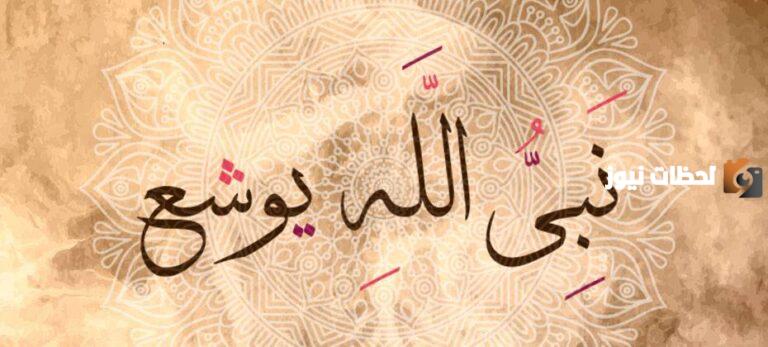 نَبِيُّ اللَّهِ يوشع
لحظات نيوز